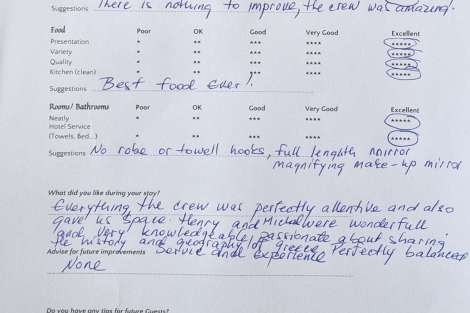 Suggestions There is nothing to improve, the crew was amazing.
Food Poor OK Good Very Good Excellent
Presentation * ** *** **** *****
Variety * ** *** **** *****
Quality * ** *** **** *****
Kitchen (clean) * ** *** **** *****
Suggestions Best food ever!
Rooms/ Bathrooms Poor OK Good Very Good Excellent
Neatly * ** *** **** *****
Hotel Service
(Towels, Bed...) * ** *** **** *****
Suggestions No robe or towell hooks, full lenghth mirror
magnifying make-up mirror
What did you like during your stay?
Everything the crew was perfectly allentive and also
gave us space. Henry and Michal were wonderfull
and very knowledgeable, passionate about sharing
the history and geography of greece
Advise for future improvements Service and experience Perfectly balanced
None
Do you have any tips for future Guests?